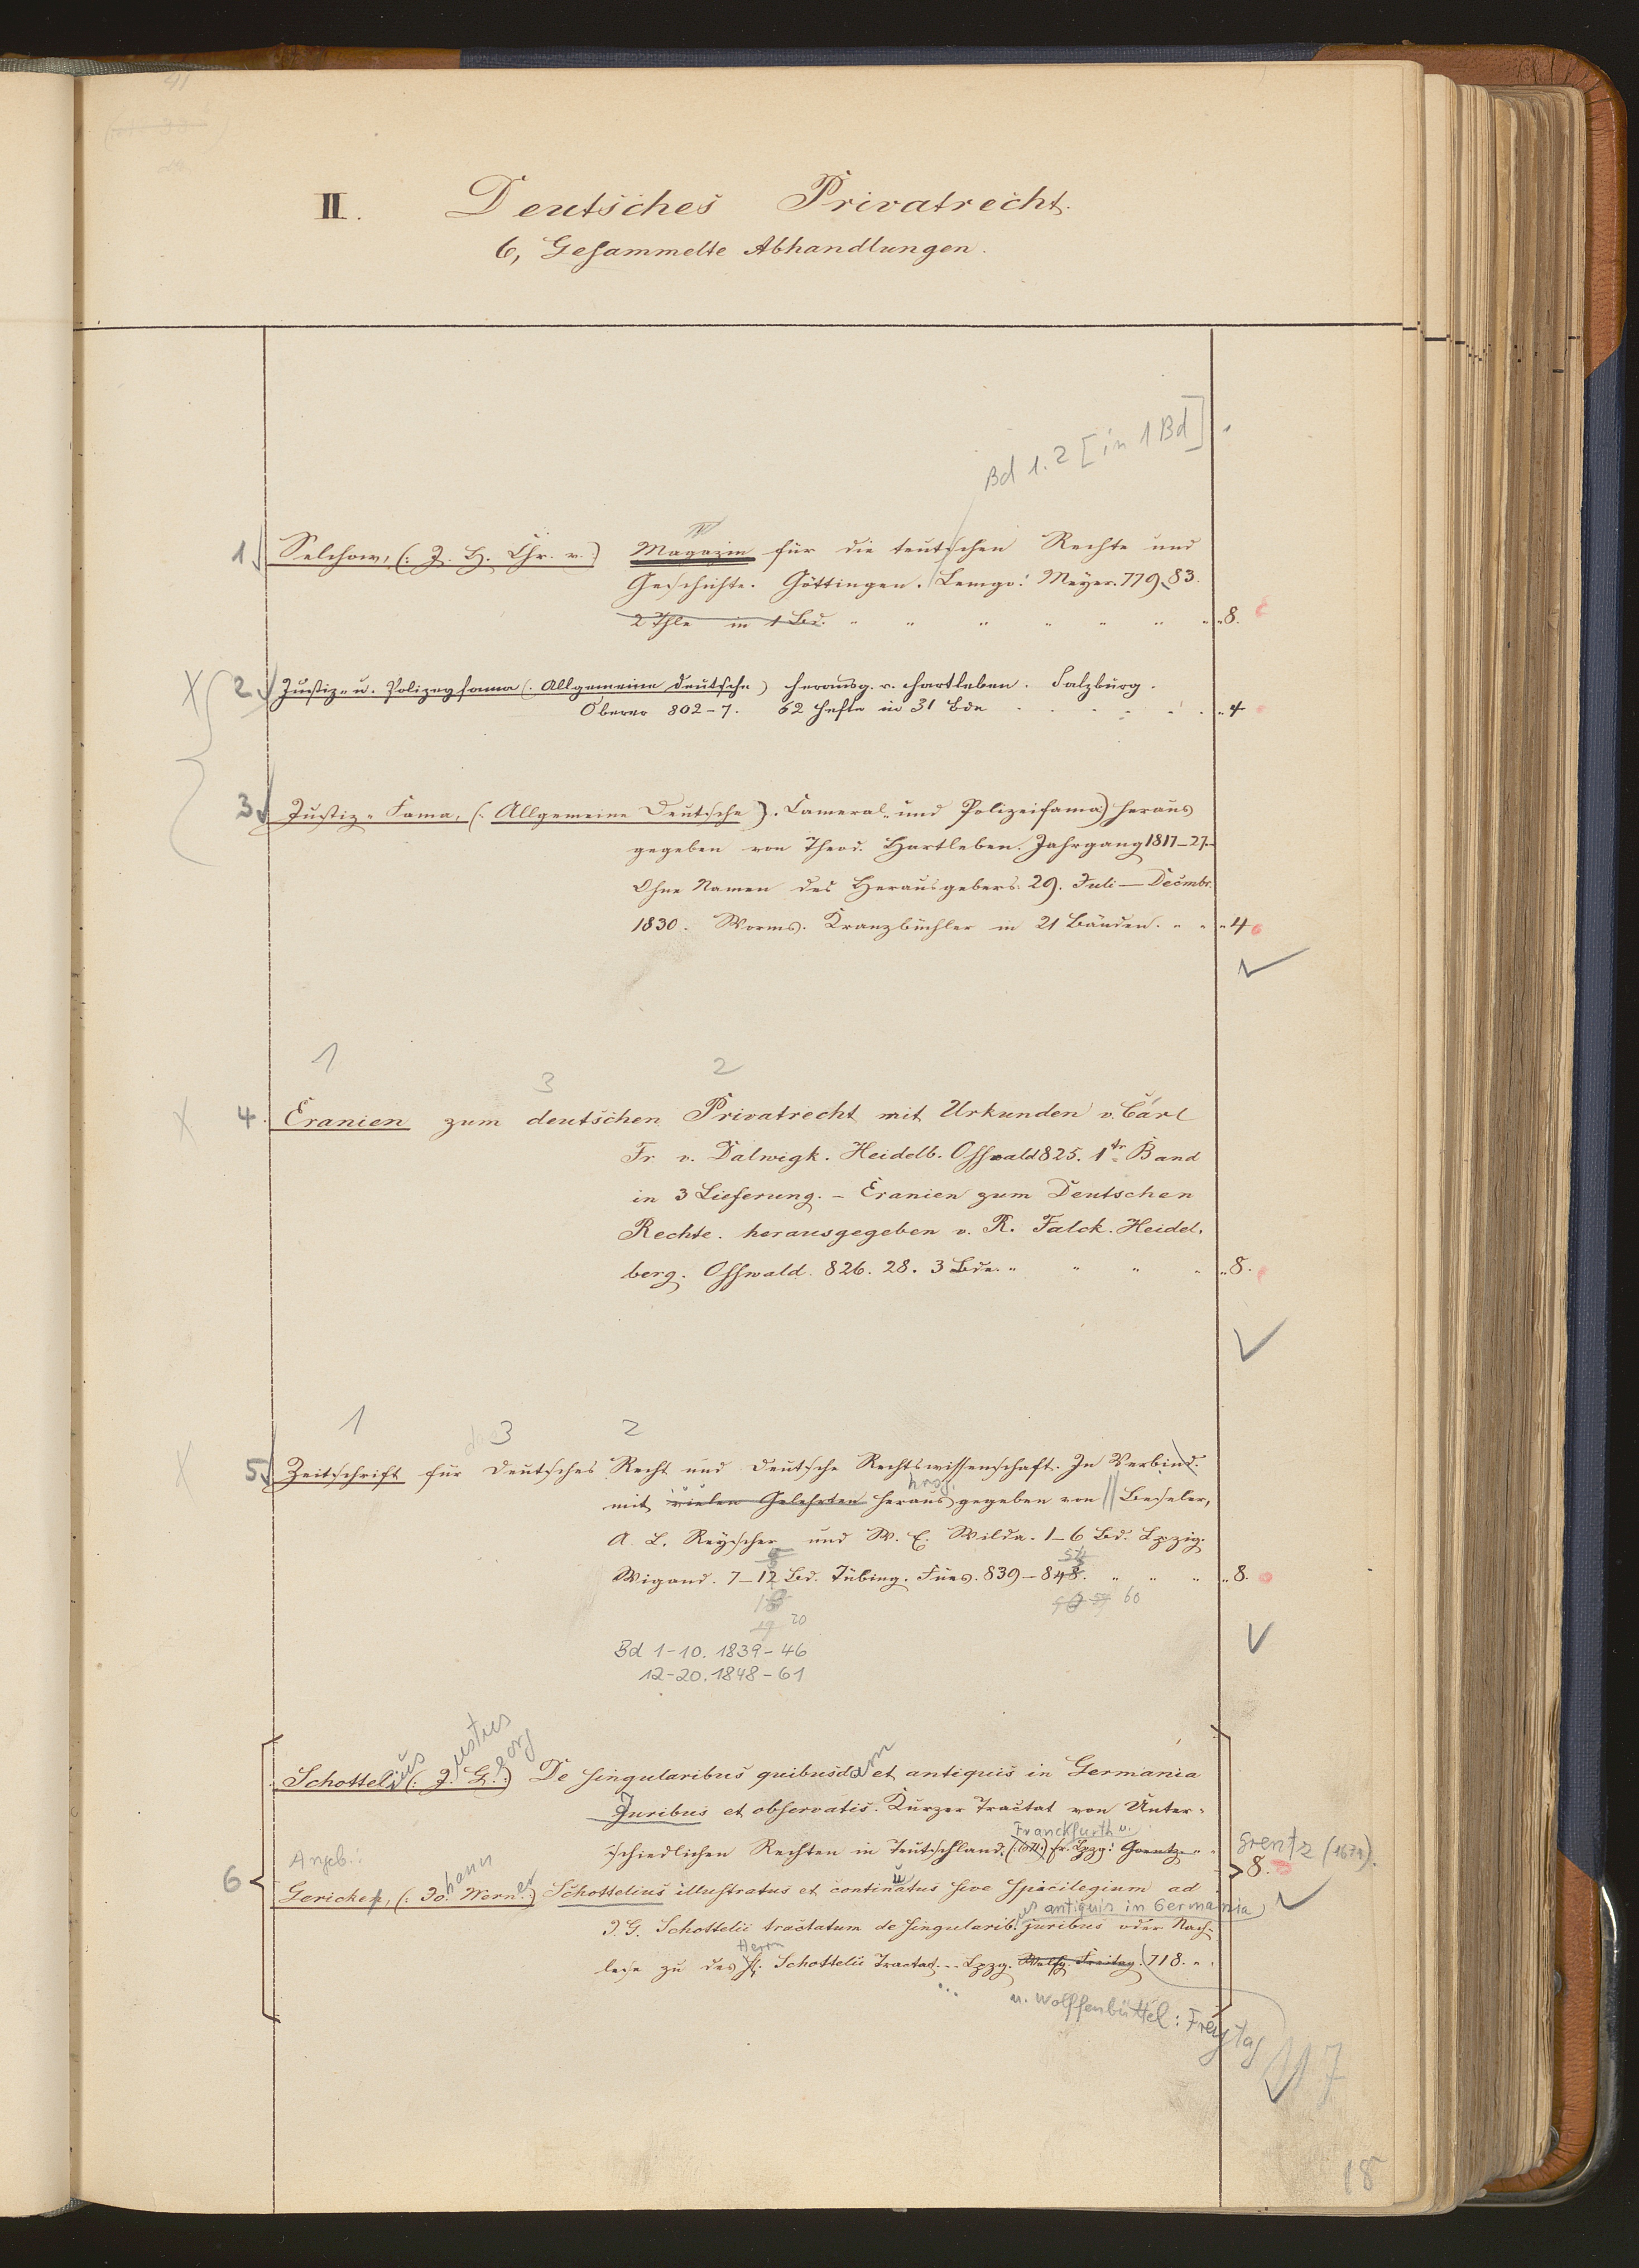 II. Deutsches Privatrecht.
6, Gesammelte Abhandlungen.
Bd 1.2 [in 1 Bd].
1. Selchow, (: J. H. Chr. v. :) Magazin für die teutschen Rechte und
Geschichte. Göttingen. Lemgo: Meyer. 779-83.
2 Thle in 1 Bd. 8.
2. Justiz- u. Polizeyfama (: Allgemeine deutsche) herausg. v. Hartleben. Salzburg.
Oberer 802-7. 62 Hefte in 31 Bde 4
3. Justiz-Fama, (: Allgemeine Deutsche). Cameral- und Polizeifama) heraus
gegeben von Theod. Hartleben. Jahrgang 1817-27.
Ohne Namen des Herausgebers. 29. Juli — Decmbr.
1830. Worms. Kranzbühler in 21 Bänden. 4
1 3 2
4. Eranien zum deutschen Privatrecht mit Urkunden v. Carl
Fr. v. Dalwigk. Heidelb. Osswald 825. 1tr Band
in 3 Lieferung. - Eranien zum Deutschen
Rechte. herausgegeben v. R. Falck. Heidel.
berg. Osswald. 826. 28. 3 Bde. 8.
1 3 2
5. Zeitschrift für Deutsches Recht und deutsche Rechtswissenschaft. In Verbind.
hrsg.
mit vielen Gelehrten herausgegeben von Beseler,
A. L. Reyscher und W. E. Wilda. 1-6 Bd. Lpzig.
Wigand. 7-12 Bd. Tübing. Fues. 839-848. 8.
20 60
Bd 1-10. 1839-46
12-20. 1848-61
Schottelius (: Justus Georg :) De singularibus quibusdam et antiquis in Germania
Juribus et observatis. Kurzer Tractat von Unter-
Franckfurth u.
schiedlichen Rechten in Teutschland. (671.) fr. Lpzg: Grentz (1671).
Angeb.:
8.
6 Gericke, (: Johann Werner :) Schottelius illustratus et continuatus sive spicilegium ad
us antiquis in Germania
J. G. Schottelii tractatum de singularib. juribus oder Nach-
Herrn
lese zu des H. Schottelii Tractat... Lpzg. Wolfg. Freitag. 718.
u. Wolffenbüttel: Freytag
18